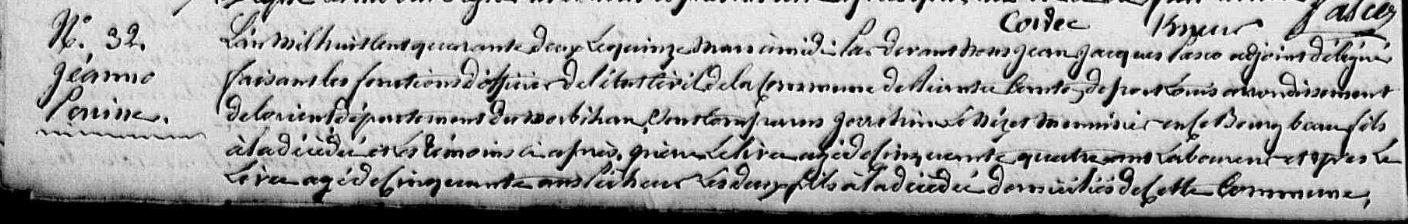 Corvec Kmeur Pasco
N.° 32.
Jeanne
Perrine.
L'an mil huit cent quarante deux le quinze mars à midi. Par devant nous Jean Jacques Pasco adjoint délégué
faisant les fonctions d'officier de l'état civil de la Commune de Riantec Canton de port Louis arrondissement
de Lorient département du morbihan, Sont Comparus Joachim Le Menuisier en ce Bourg beau fils
à la décédée et les témoins ci après, âgé de Cinquante quatre ans Laboureur et Yves Le
âgé de Cinquante ans Pêcheur Les deux fils à la décédée domiciliés de Cette Commune,